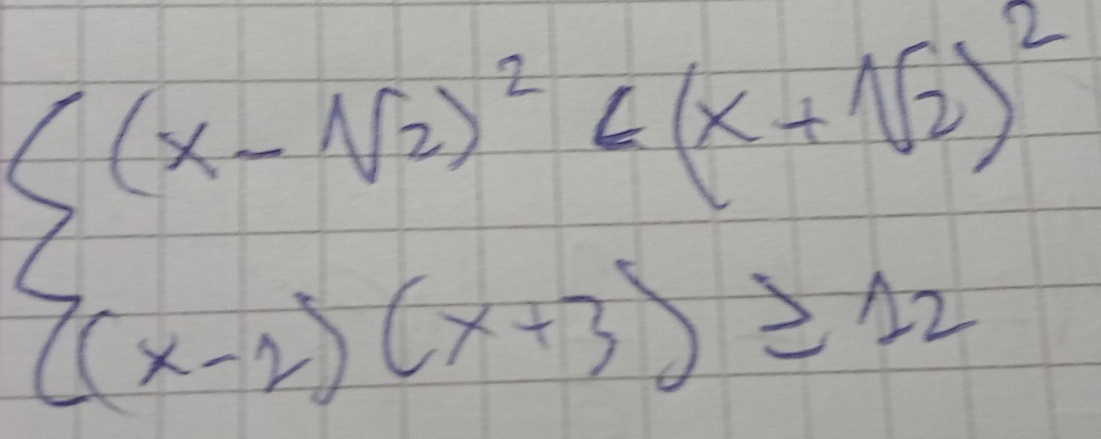 { (x - √2)² < (x + √2)²
(x - 2) (x + 3) ≥ 12